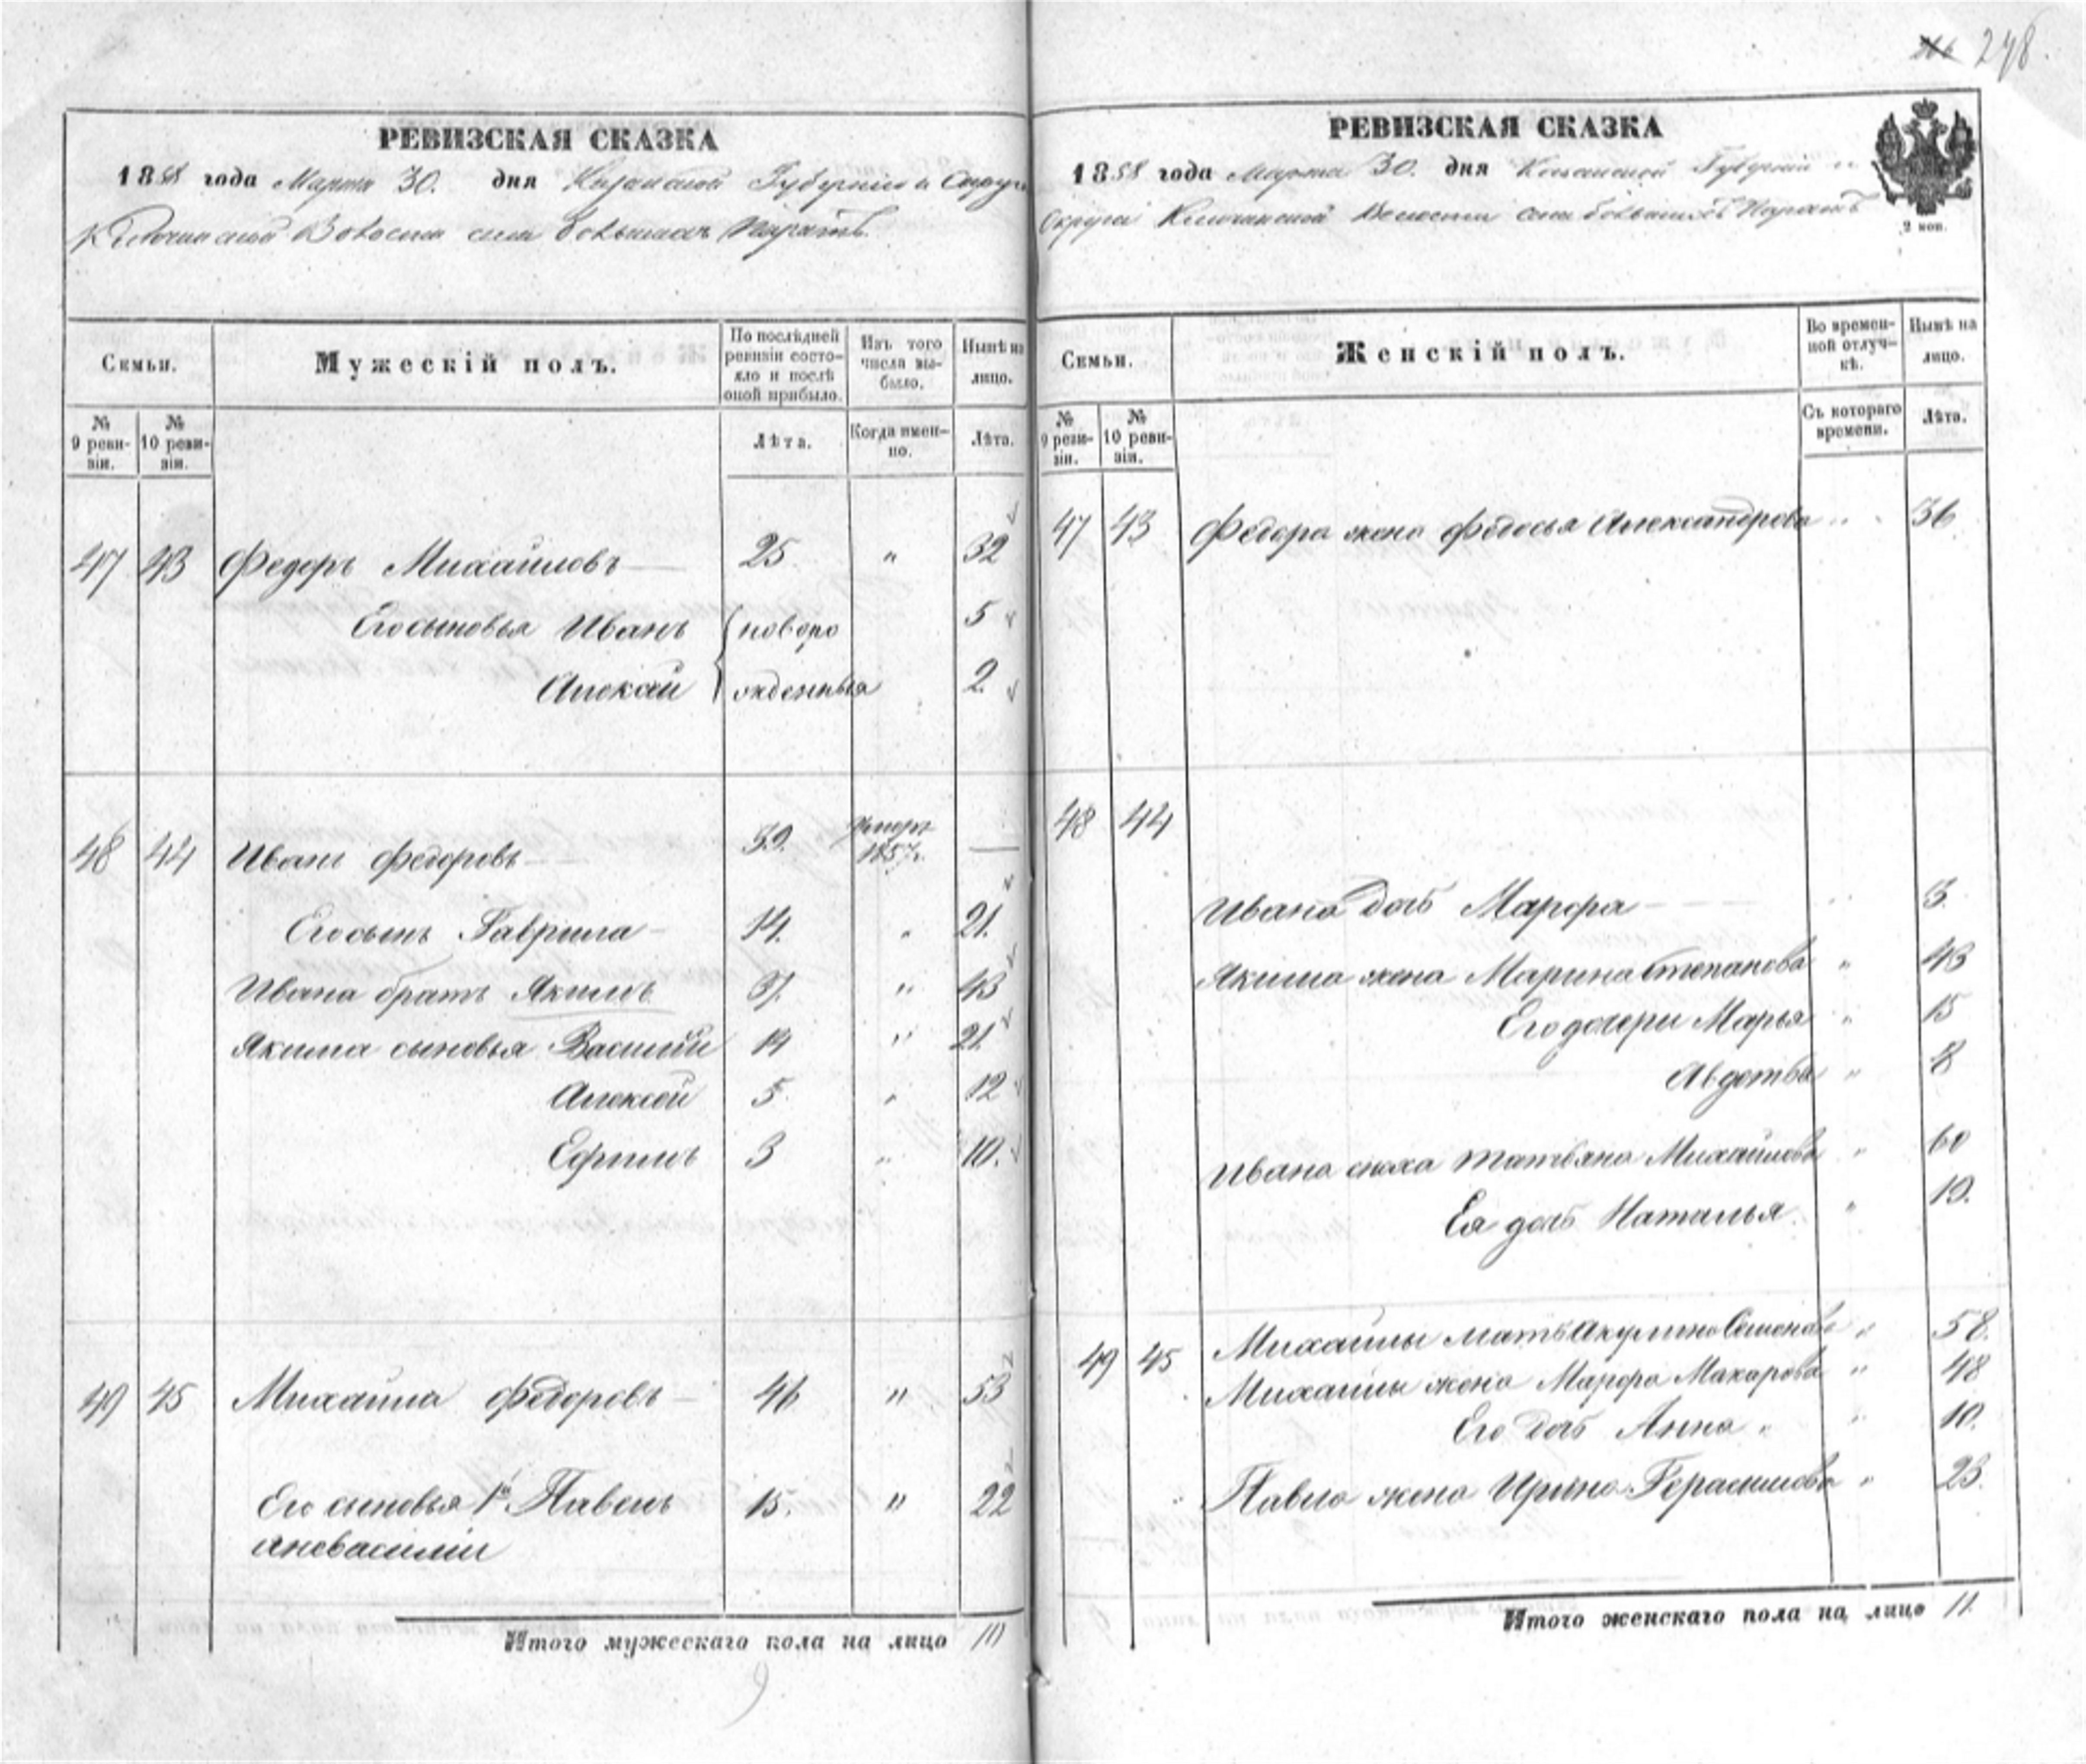 248.
РЕВИЗСКАЯ СКАЗКА
1858 года Марта 30. дня Казанской Губернии и Округа
Ключинской Волости села Большихъ Паратъ
Семьи.
Мужескій полъ.
По послѣдней ревизіи состояло и послѣ оной прибыло.
Изъ того числа выбыло.
Нынѣ на лицо.
№ 9 ревизіи.
№ 10 ревизіи.
Лѣта.
Когда именно.
Лѣта.
47 43 Федоръ Михайловъ 25 " 32
Его сыновья Иванъ новоро 5
Алексѣй жденныя 2
48 44 Иванъ Федоровъ 39. умеръ 1857 г. —
Его сынъ Гаврила 14. " 21.
Ивана братъ Якимъ 37. " 43
Якима сыновья Василий 14 " 21.
Алексѣй 5 " 12
Ефимъ 3 " 10.
49 45 Михайла Федоровъ 46 " 53
Его сыновья 1й Павелъ 15. " 22
Итого мужескаго пола на лицо 10
9
РЕВИЗСКАЯ СКАЗКА
1858 года Марта 30. дня Казанской Губерніи и
Округи Ключинской Волости села Большихъ Паратъ
2 коп.
Семьи.
Женскій полъ.
Во временной отлучкѣ.
Нынѣ на лицо.
№ 9 ревизіи.
№ 10 ревизіи.
Съ котораго времени.
Лѣта.
47 43 Федора жена Федосья Александрова " 36
48 44
Ивана дочь Марфа " 13.
Якима жена Марина Степанова " 43
Его дочери Марья " 15
Авдотья " 8
Ивана сноха Татьяна Михайлова " 60
Ея дочь Наталья " 19.
49 45 Михайлы мать Акулина Семенова " 58.
Михайлы жена Марфа Макарова " 48
Его дочь Анна " 10.
Павла жена Ирина Герасимова " 23.
Итого женскаго пола на лицо 11.